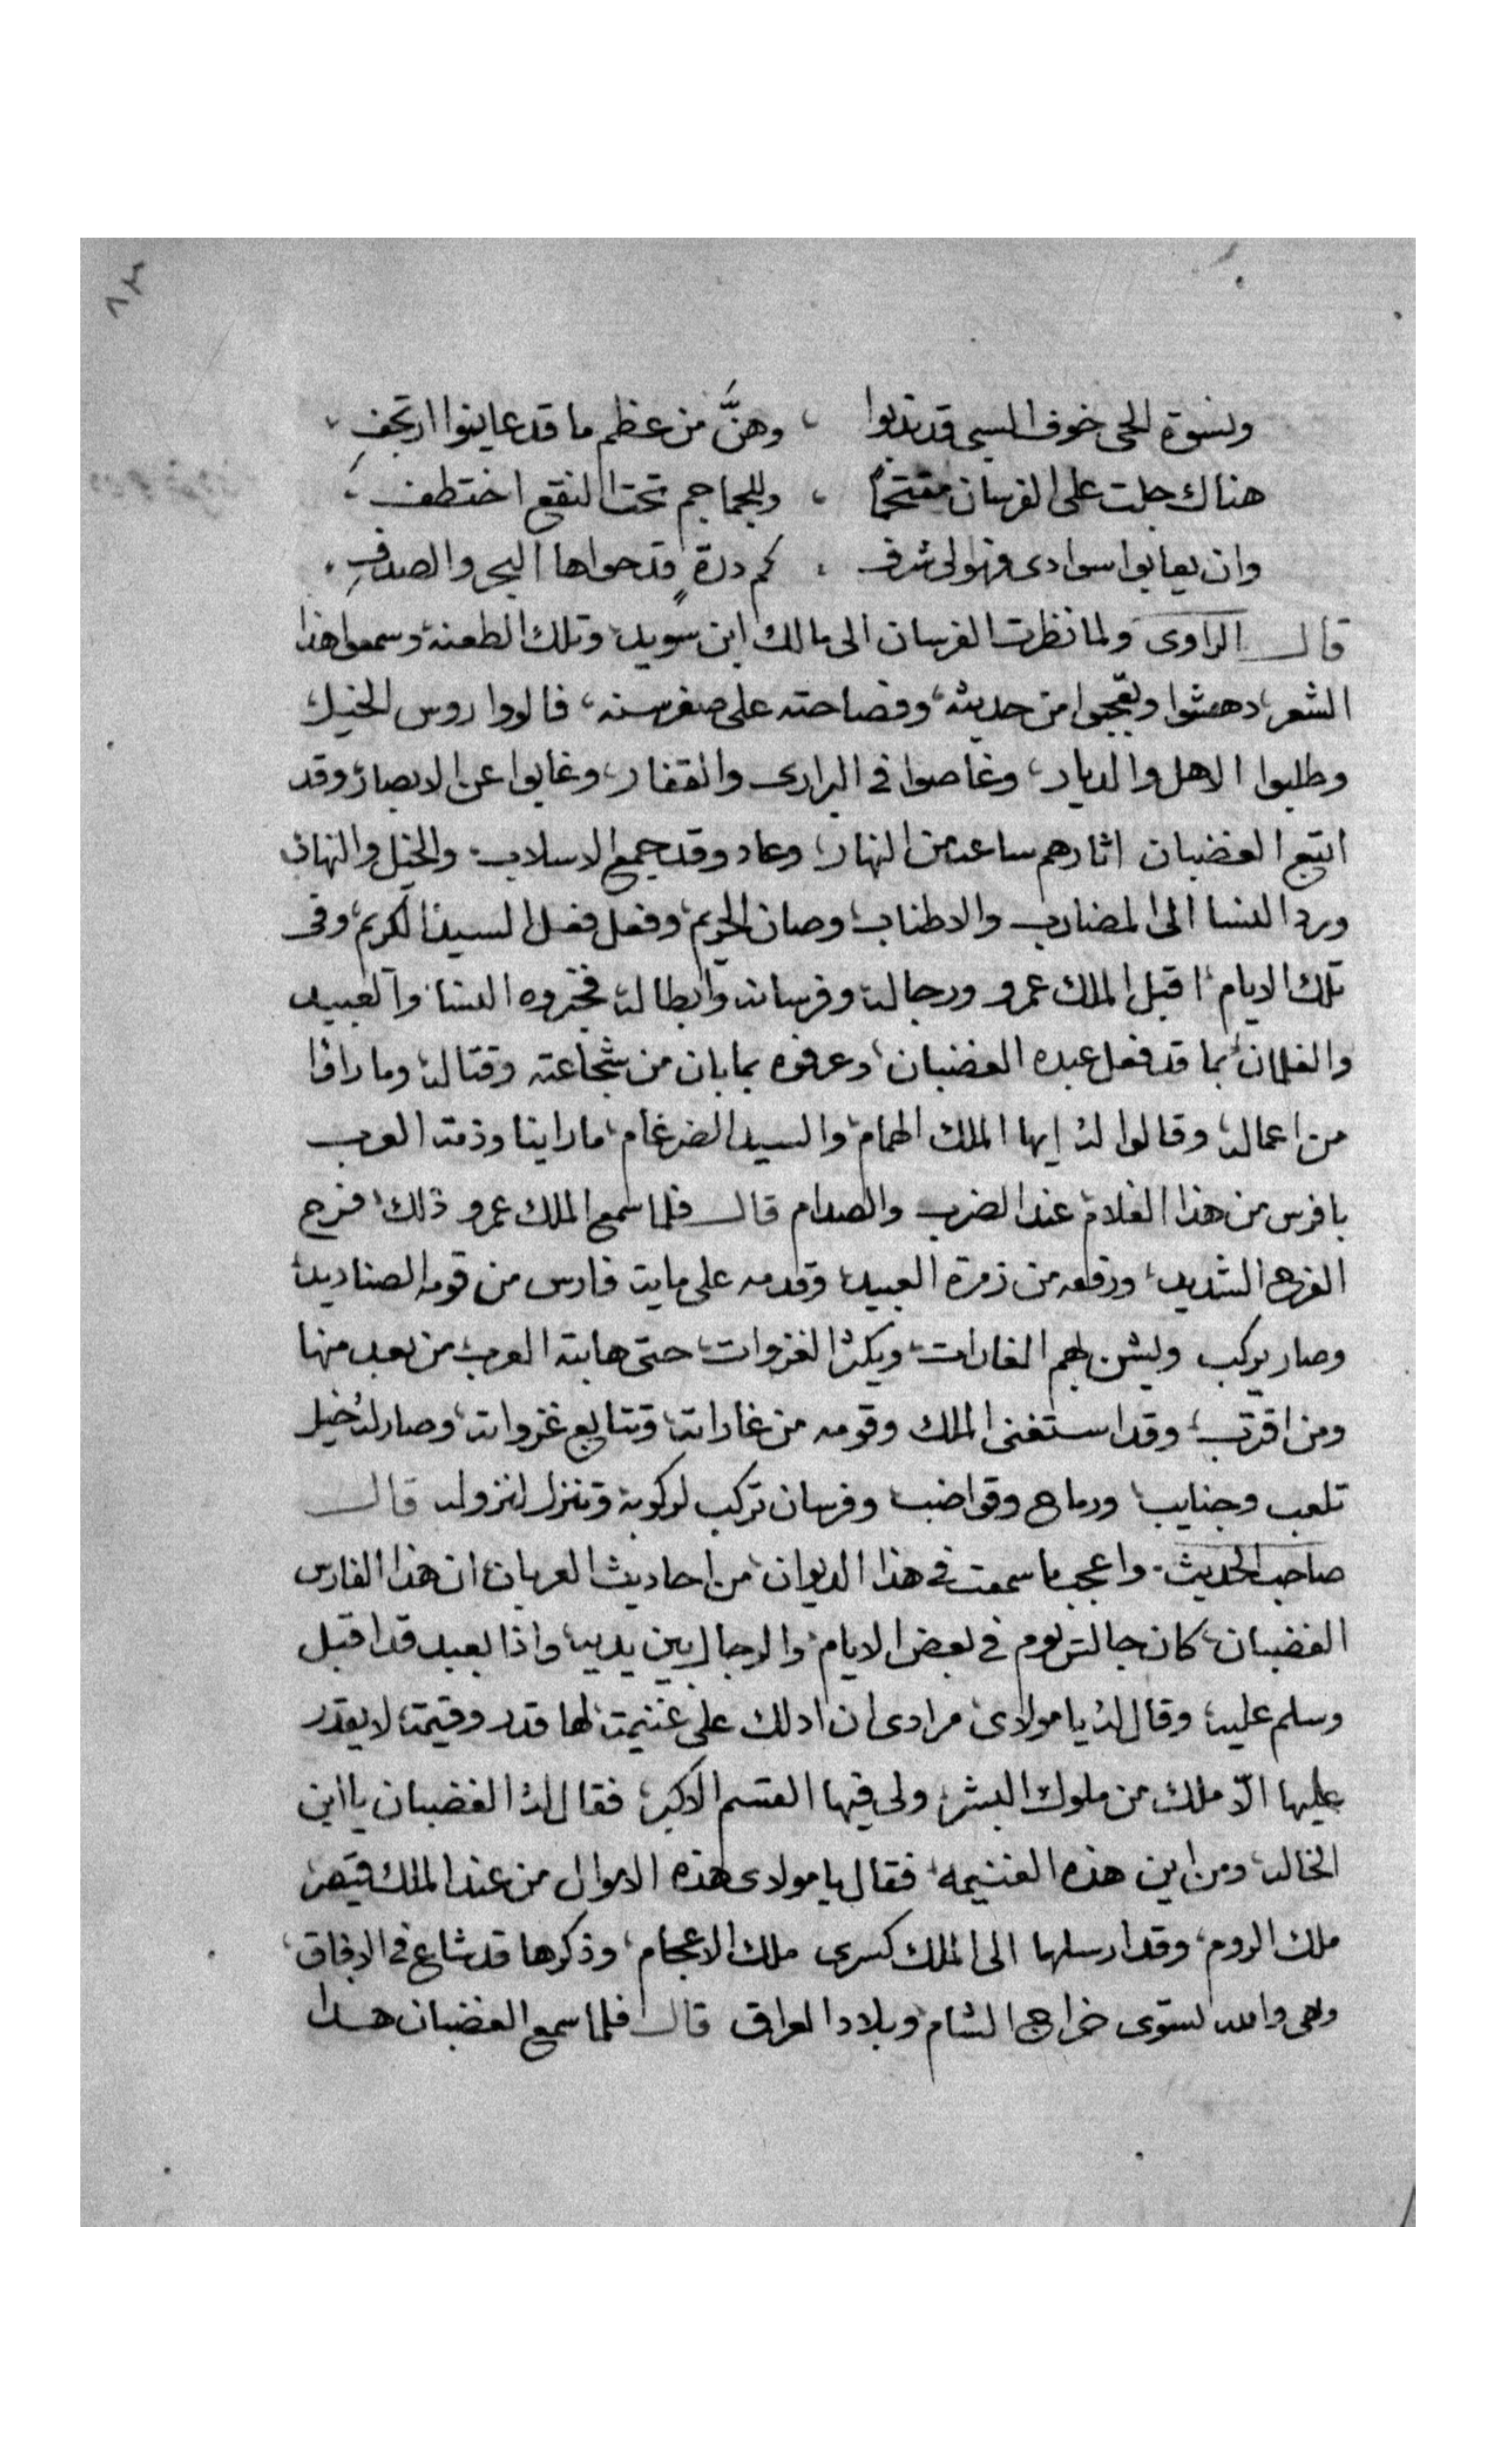 ٨٢
ونسوة الحى خوف السبى قد ندبوا ، وهنَّ من عظم ما قد عاينوا ارتجفِ ،
هناك جلت على الفرسان مقتحمًا ، وللجماجم تحت النقع اختطف ،
وان يعايبوا سوادى فهو لى شرف ، كم درة قد حواها البحر والصدفِ ،
قال الراوى ولما نظرت الفرسان الى مالك ابن سويد، وتلك الطعنه، وسمعوا هذا
الشعر، دهشوا وتعجبوا من حديثه، وفصاحته على صغر سنه، فالووا روس الخيل
وطلبوا الاهل والديار، وغاصوا فى البرارى والقفار، وغابوا عن الابصار، وقد
اتبع الغضبان اثارهم ساعة من النهار، وعاد وقد جمع الاسلاب، والخيل والنهاب
ورد النسا الى المضارب والاطناب، وصان الحريم، وفعل فعل السيد الكريم، وفى
تلك الايام، اقبل الملك عمرو ورجاله وفرسانه وابطاله فخبروه النسا والعبيد
والغلمان، بما قد فعل عبده الغضبان، وعرفوه بما بان من شجاعته وقتاله، وما راوا
من اعماله، وقالوا له ايها الملك الهمام، والسيد الضرغام، ما راينا وذمة العرب
بافرس من هذا الغلام، عند الضرب والصدام قال فلما سمع الملك عمرو ذلك، فرح
الفرح الشديد، ورفعه من زمرة العبيد، وقدمه على ماية فارس من قومه الصناديد،
وصار يركب ويشن بهم الغارات، ويكثر الغزوات، حتى هابته العرب، من بعد منها
ومن اقترب، وقد استغنى الملك وقومه من غاراته، وتتابع غزواته، وصار له خيل
تلعب وجنايب، ورماح وقواضب وفرسان تركب لركوبه وتنزل لنزوله قال
صاحب الحديث، واعجب ما سمعت فى هذا الديوان، من احاديث العربان، ان هذا الفارس
الغضبان، كان جالس يوم فى بعض الايام، والرجال بين يديه، واذا بعبد قد اقبل
وسلم عليه، وقال له يا مولاى مرادى ان ادلك على غنيمة لها قدر وقيمة، لا يقدر
عليها الّا ملك من ملوك البشر، ولى فيها القسم الاكبر، فقال له الغضبان يا ابن
الخاله، ومن اين هذه الغنيمه، فقال يا مولاى هذه الاموال من عند الملك قيصر،
ملك الروم، وقد ارسلها الى الملك كسرى ملك الاعجام، وذكرها قد شاع فى الافاق،
وهى والله تسوى خراج الشام، وبلاد العراق قال فلما سمع الغضبان هذا